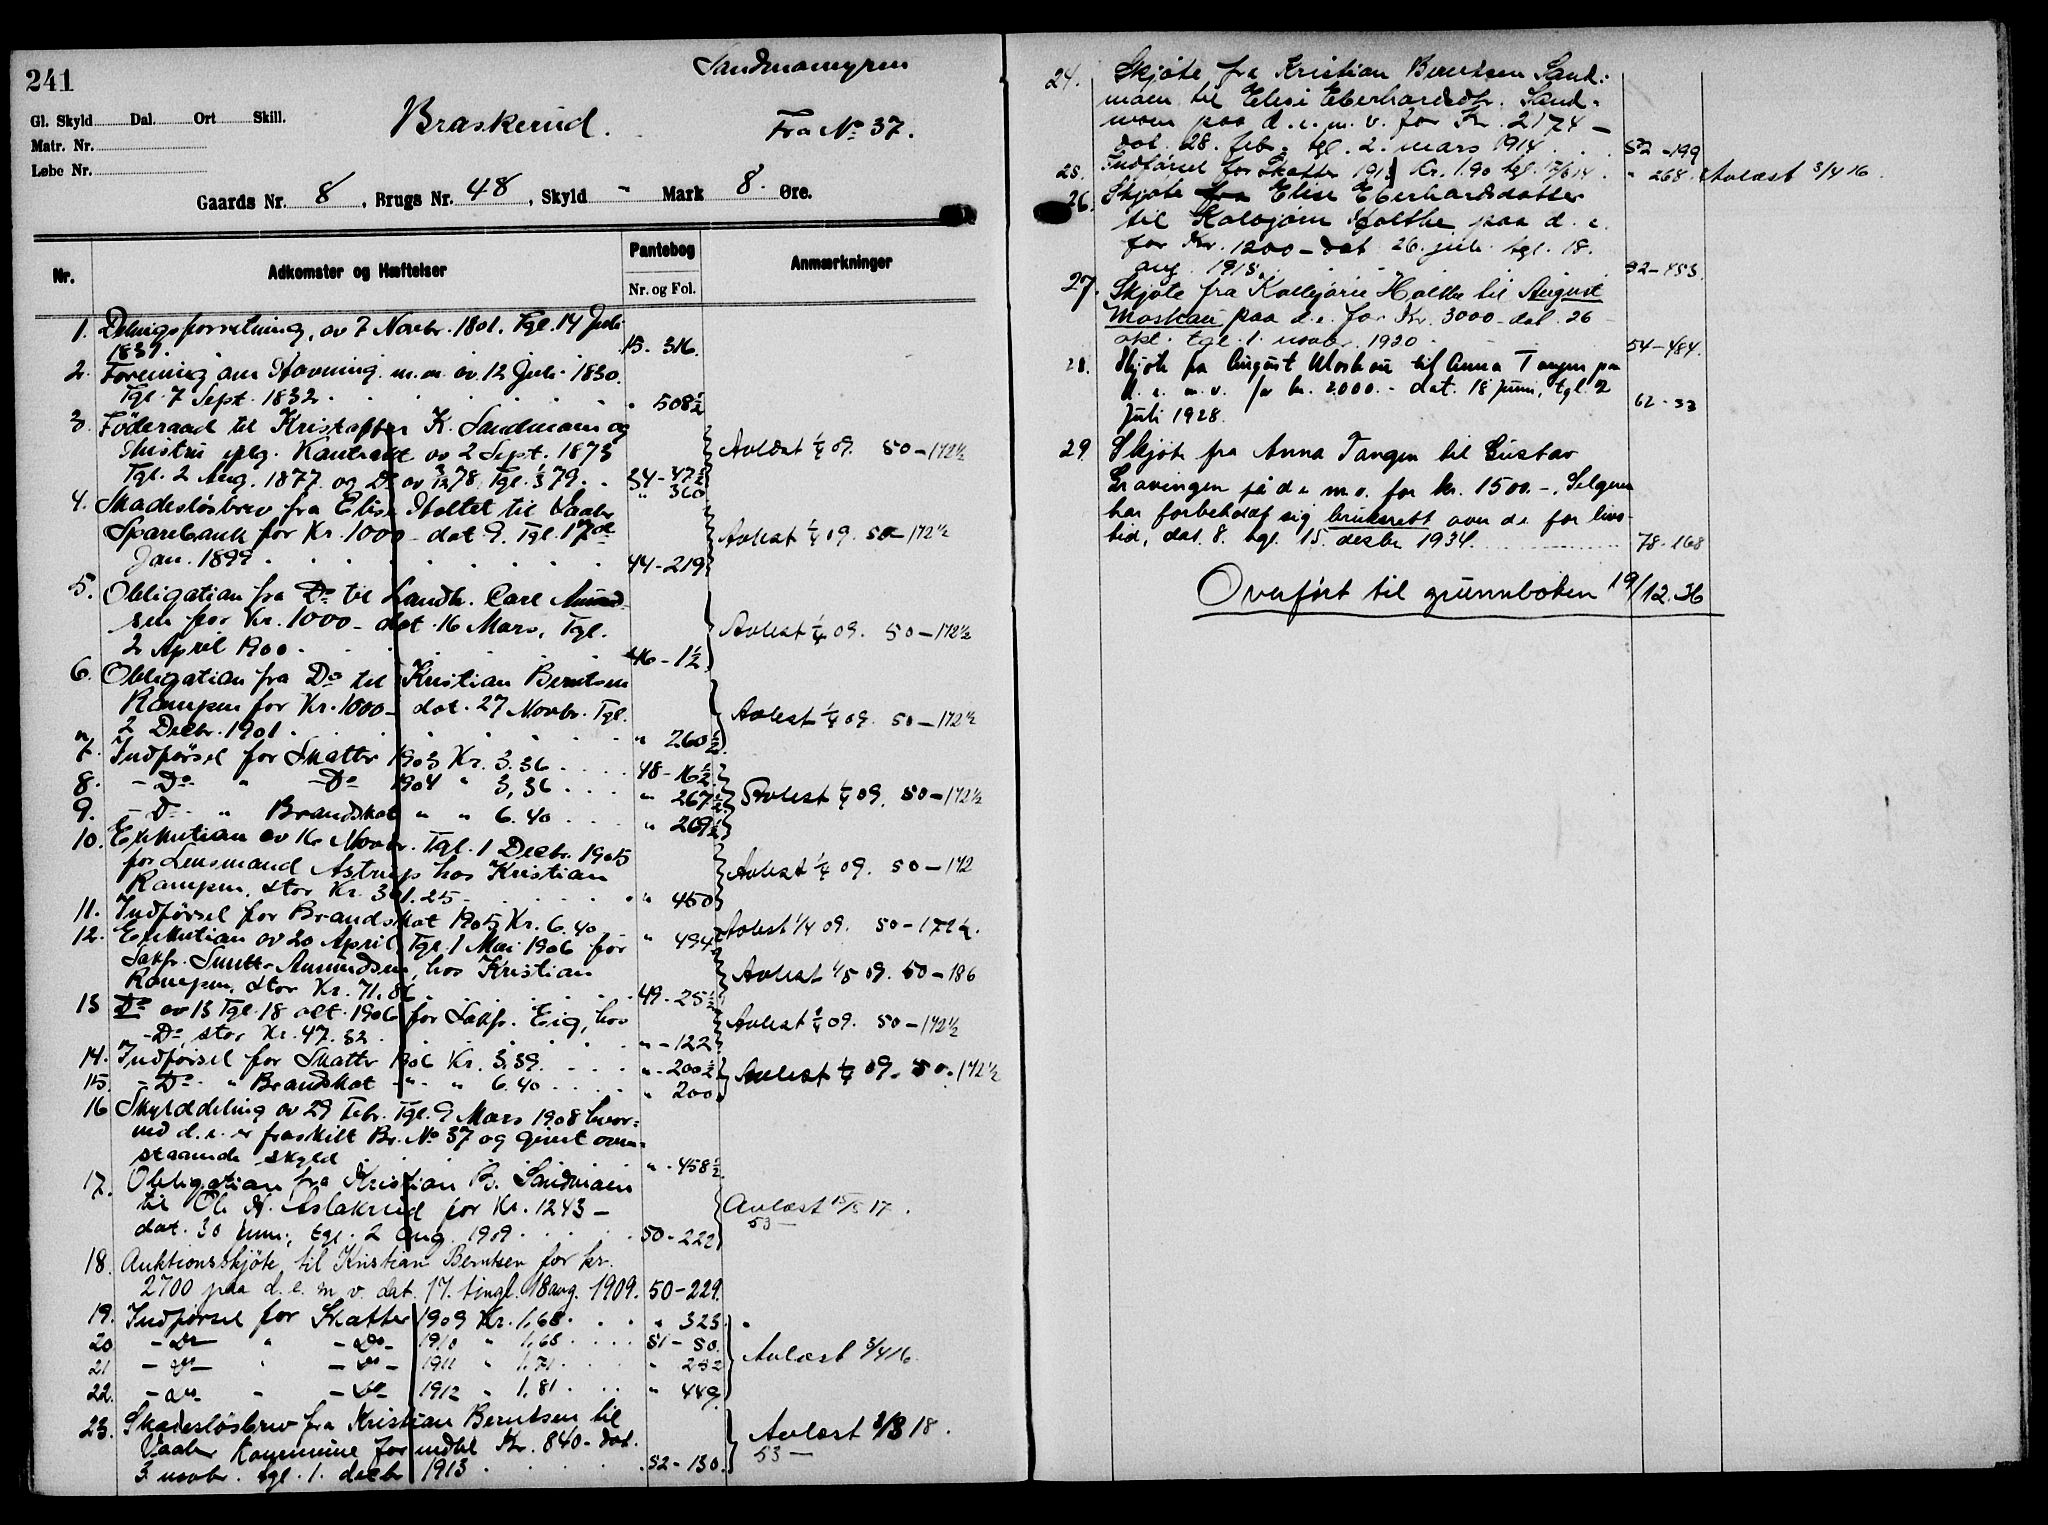 241
Sandmomyren
Gl. Skyld Dal. Ort Skill.
Braskerud.
Fra No 37.
Matr. Nr.
Løbe Nr.
Gaards Nr. 8, Brugs Nr. 48, Skyld - Mark 8. Øre.
Nr. Adkomster og Hæftelser Pantebog Nr. og Fol. Anmærkninger
1. Delingsforretning, av 7 Novbr. 1801. Tgl. 14 Juli
1831. 15. 316.
2. Forening om Havning m.m. av 12 Juli 1830.
Tgl. 7 Sept. 1832 " 508½
3. Føderaad til Kristoffer K. Sandmoen og
Hustru iflg. Kontrakt av 2 Sept. 1873 Avlæst ¼ 09. 50-172½
Tgl. 2 Aug. 1877 og Do av 78. Tgl. 79. 34-47½
" 360
4. Skadesløsbrev fra Elise Holtet til Vaaler
Sparebank for Kr. 1000 - dat 9. Tgl. 17de Avlest ¼ 09. 50-172½
Jan. 1899 44-219
5. Obligation fra Do til Landh. Carl Amund-
sen for Kr. 1000 - dat. 16 Mars, Tgl. Avlest ¼ 09. 50-172½
2 April 1900 46-1½
6. Obligation fra Do til Kristian Berntsen
Rampen for Kr. 1000 - dat. 27 Novbr. Tgl. Avlest ¼ 09. 50-172½
2 Decbr. 1901. " 260½
7. Indførsel for Skatter 1903 Kr. 3.36 48-16½
8. - Do " - Do 1904 " 3,36 " 267½ Avlest ¼ 09. 50-172½
9. - Do " Brandskat " " 6.40 " 269½
10. Exekution av 16 Novbr. Tgl. 1 Decbr. 1905
for Lensmand Astrup hos Kristian Avlest ¼ 09. 50-172
Rampen, stor Kr. 301.25 " 450
11. Indførsel for Brandskat 1905 Kr. 6.40 " 494 Avlest 1/4 09. 50-172½.
12. Exekution av 20 April, Tgl. 1 Mai 1906 for
Sakf. Smitt-Amundsen, hos Kristian Avlest 1/5 09. 50-186
Rampen, stor Kr. 71.86 49-25½
13 Do av 13 Tgl. 18 okt. 1906 for Sakf. Eig, hos Avlest ¼ 09. 50-172½
- Do, stor Kr. 47.52 " - 122
14. Indførsel for Skatter 1906 Kr. 3,39. " - 200½ Avlest ¼ 09. 50-172½
15. - Do - " Brandskat - " - " 6.40 " 200
16 Skylddeling av 29 Febr. Tgl. 9 Mars 1908 hvor-
ved d.e. er fraskilt Br. No 37 og givet oven-
staaende skyld " - 458½
17. Obligation fra Kristian B. Sandmoen
til Ole H. Aslakrud for Kr. 1243 - Avlæst 15/5 17.
dat. 30 juni, tgl. 2 aug. 1909 50-222 53 -
18. Auktionsskjøte til Kristian Berntsen for kr.
2700 paa d.e.m.v. dat. 17. tingl. 18 aug. 1909. 50-229.
19. Indførsel for Skatter 1909 Kr. 1,68. " 323.
20 - Do - " - Do - 1910 " 1,68 51-50. Avlæst 3/4 16.
21 - Do - " - Do - 1911 " 1,71 " 232
22. - Do - " - Do - 1912 " 1,81 " 449
23. Skadesløsbrev fra Kristian Berntsen til
Vaaler Kommune for indtil Kr. 840 - dat. Avlæst 2/3 18.
3 novbr. tgl. 1. decbr 1913 52-130. 53 -
24. Skjøte fra Kristian Berntsen Sand-
moen til Elise Eberhardsdtr. Sand-
moen paa d.e.m.v. for Kr. 2174 -
dat. 28. feb. tgl. 2. mars 1914 52-199
25. Indførsel for Skatter 1913 Kr. 1.90 tgl. 14. " 268. Avlæst 3/4 16.
26. Skjøte fra Elise Eberhardsdatter
til Kolbjørn Holthe paa d.e.
for Kr. 1200 - dat 26. juli tgl. 18.
aug. 1915. 52-453.
27. Skjøte fra Kolbjørn Holthe til August
Moskau paa d.e. for Kr. 3000 - dat. 26
okt. tgl. 1. novbr. 1920 54-484.
28. Skjøte fra August Moskau til Anna Tangen paa
d.e.m.v. for kr. 2000.- dat. 18 juni, tgl. 2
Juli 1928. 62-33
29 Skjøte fra Anna Tangen til Gustav
Gravingen på d e m.v. for kr. 1500.-. Selgeren
har forbeholdt sig bruksrett over d.e. for livs-
tid, dat. 8. tgl. 15. desbr 1934. 78-168
Overført til grunnboken 19/12.36